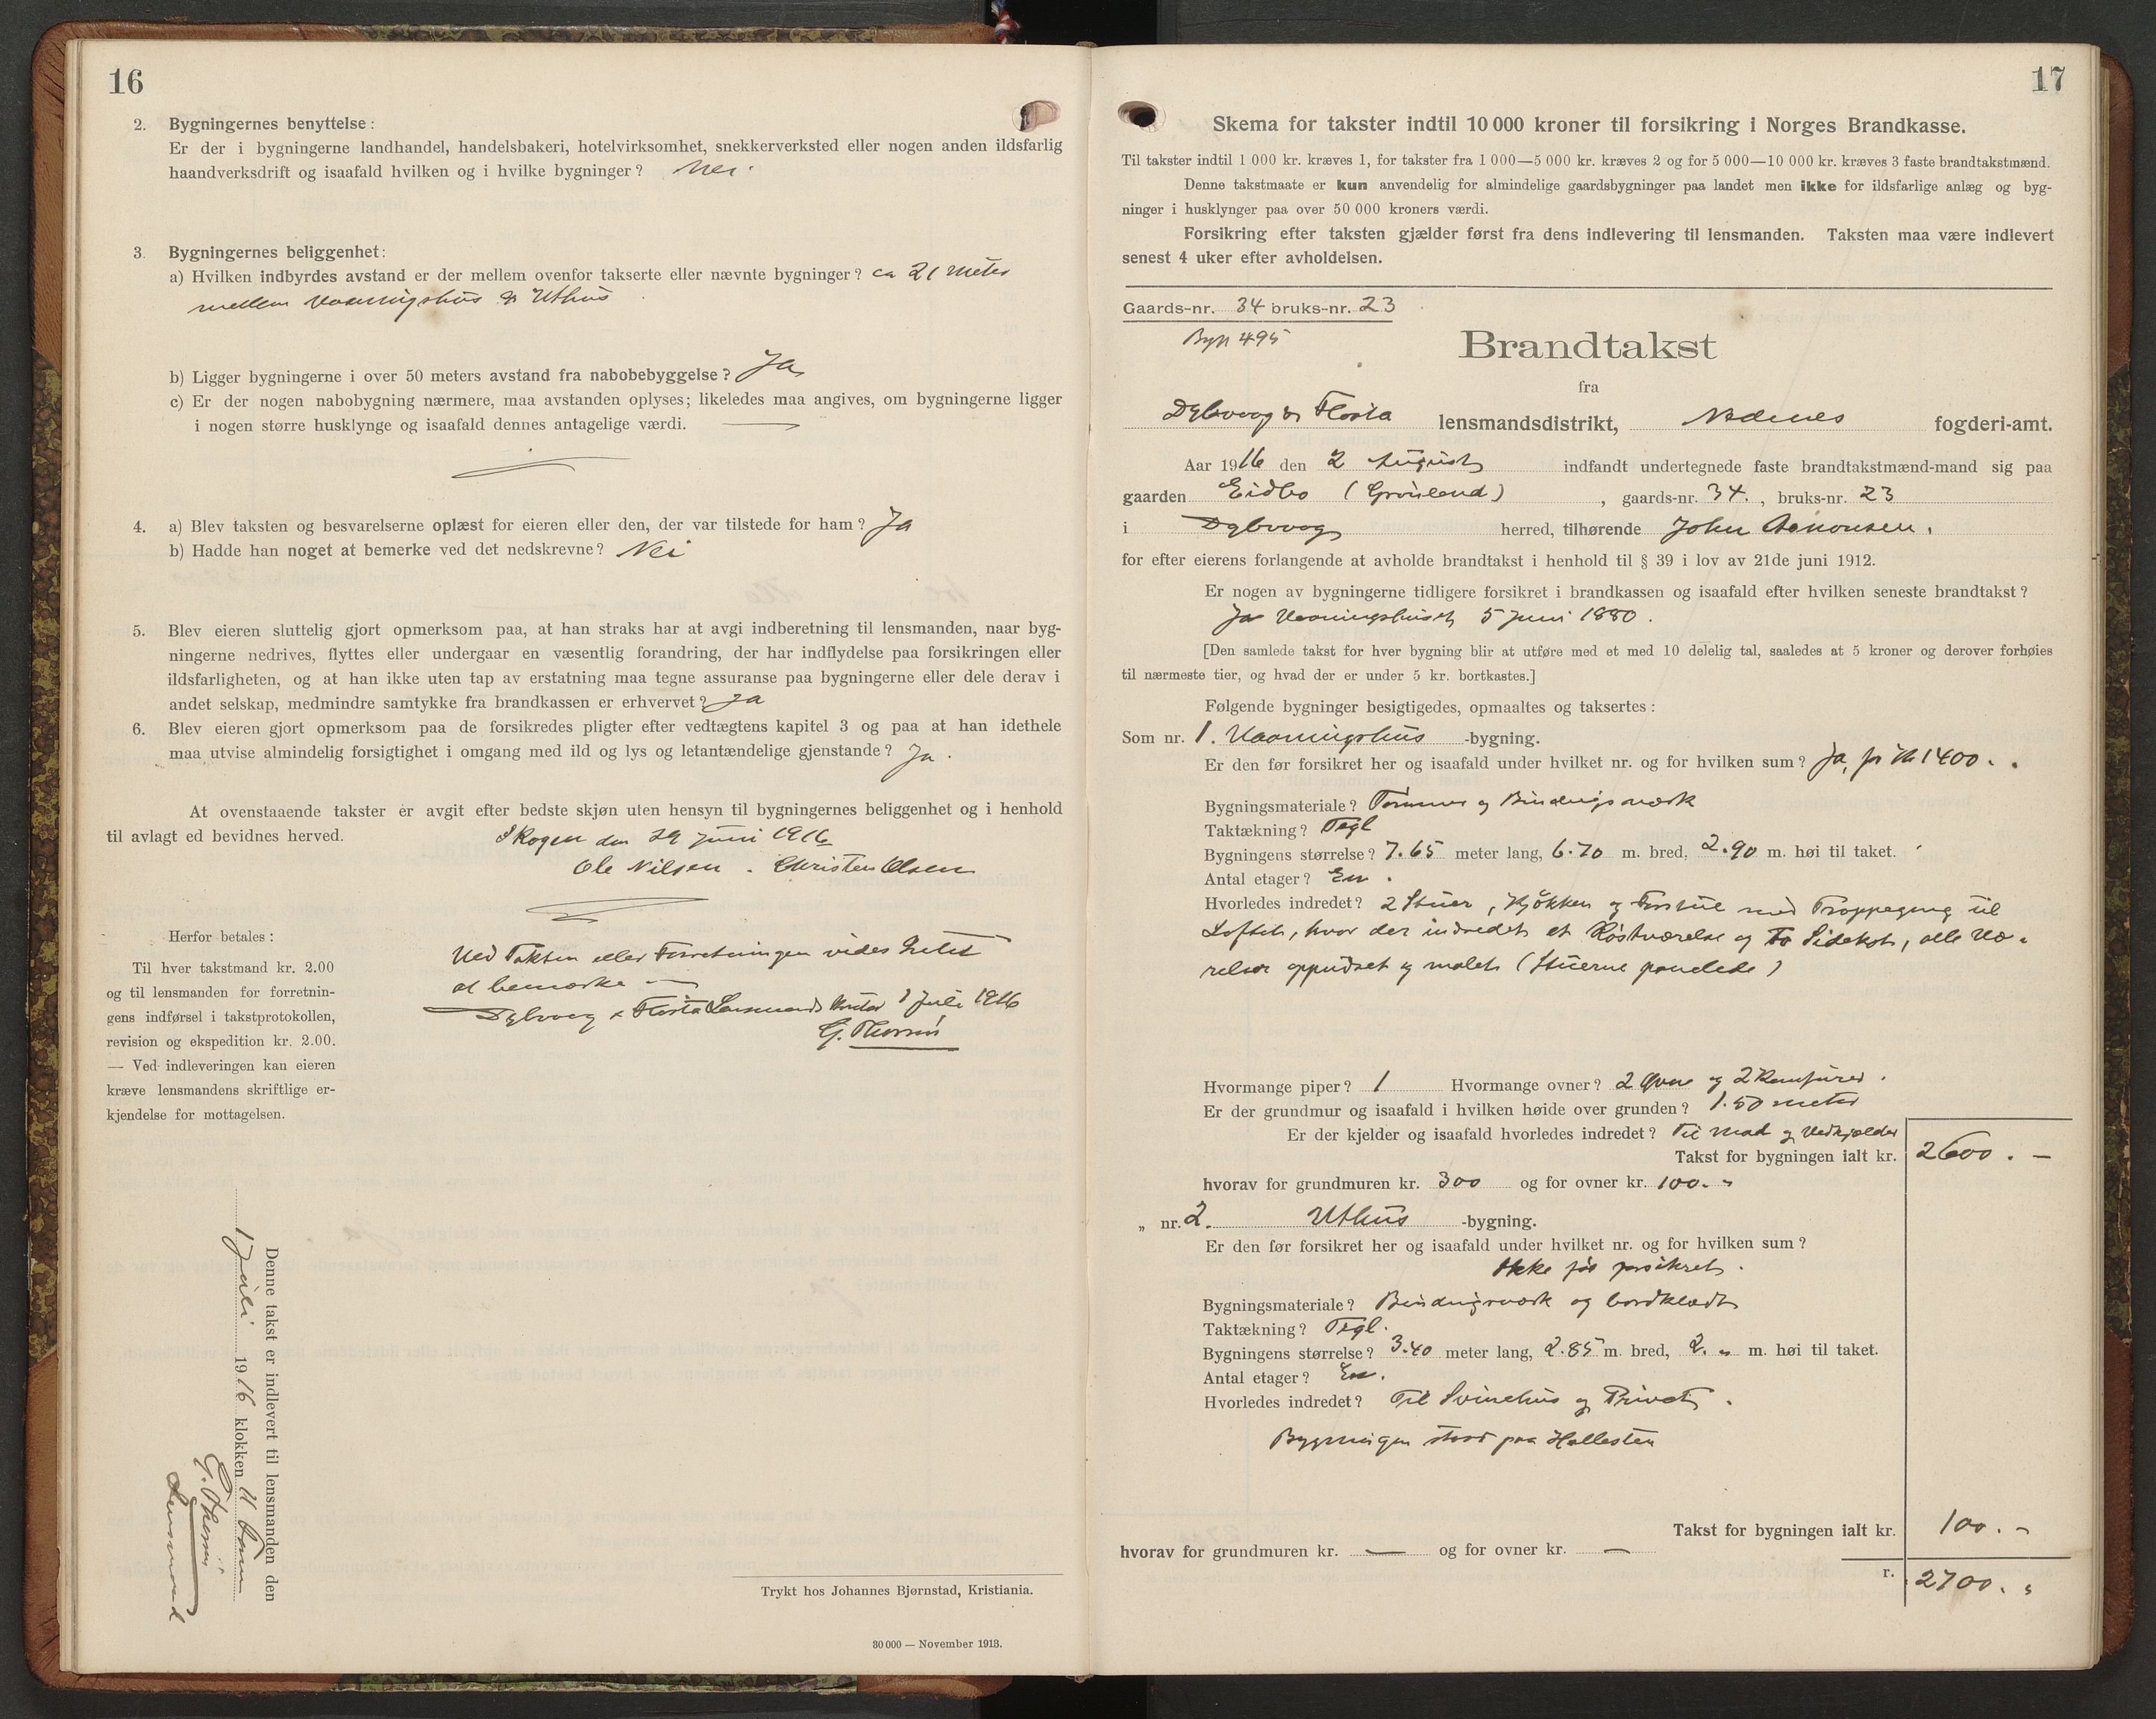 16
2. Bygningernes benyttelse:
Er der i bygningerne landhandel, handelsbakeri, hotelvirksomhet, snekkerverksted eller nogen anden ildsfarlig
haandverksdrift og isaafald hvilken og i hvilke bygninger? Nei.
3. Bygningernes beliggenhet:
a) Hvilken indbyrdes avstand er der mellem ovenfor takserte eller nævnte bygninger? ca 21 meter
mellem Vaaningshus & Uthus
b) Ligger bygningerne i over 50 meters avstand fra nabobebyggelse? Ja
c) Er der nogen nabobygning nærmere, maa avstanden oplyses; likeledes maa angives, om bygningerne ligger
i nogen større husklynge og isaafald dennes antagelige værdi. —
4. a) Blev taksten og besvarelserne oplæst for eieren eller den, der var tilstede for ham? Ja
b) Hadde han noget at bemerke ved det nedskrevne? Nei
5. Blev eieren sluttelig gjort opmerksom paa, at han straks har at avgi indberetning til lensmanden, naar byg-
ningerne nedrives, flyttes eller undergaar en væsentlig forandring, der har indflydelse paa forsikringen eller
ildsfarligheten, og at han ikke uten tap av erstatning maa tegne assuranse paa bygningerne eller dele derav i
andet selskap, medmindre samtykke fra brandkassen er erhvervet? Ja
6. Blev eieren gjort opmerksom paa de forsikredes pligter efter vedtægtens kapitel 3 og paa at han idethele
maa utvise almindelig forsigtighet i omgang med ild og lys og letantændelige gjenstande? Ja.
At ovenstaaende takster er avgit efter bedste skjøn uten hensyn til bygningernes beliggenhet og i henhold
til avlagt ed bevidnes herved.
Skogen den 29 Juni 1916
Ole Nilsen . Christen Olsen
Ved Taksten eller Forretningen vides Intet
at bemærke —
Dybvaag & Flosta Lensmands Kontor 1 Juli 1916
G. Thorsen
Herfor betales:
Til hver takstmand kr. 2.00
og til lensmanden for forretnin-
gens indførsel i takstprotokollen,
revision og ekspedition kr. 2.00.
— Ved indleveringen kan eieren
kræve lensmandens skriftlige er-
kjendelse for mottagelsen.
Denne takst er indlevert til lensmanden den
1 Juli 1916 klokken 11 Form
G. Thorsen
Lensmand
Trykt hos Johannes Bjørnstad, Kristiania.
30 000 — November 1913.
17
Skema for takster indtil 10 000 kroner til forsikring i Norges Brandkasse.
Til takster indtil 1 000 kr. kræves 1, for takster fra 1 000—5 000 kr. kræves 2 og for 5 000—10 000 kr. kræves 3 faste brandtakstmænd.
Denne takstmaate er kun anvendelig for almindelige gaardsbygninger paa landet men ikke for ildsfarlige anlæg og byg-
ninger i husklynger paa over 50 000 kroners værdi.
Forsikring efter taksten gjælder først fra dens indlevering til lensmanden. Taksten maa være indlevert
senest 4 uker efter avholdelsen.
Gaards-nr. 34 bruks-nr. 23
495
Brandtakst
fra
Dybvaag & Flosta lensmandsdistrikt, Nedenes fogderi-amt.
Aar 1916 den 2 August indfandt undertegnede faste brandtakstmænd-mand sig paa
gaarden Eidbo (Grönland), gaards-nr. 34., bruks-nr. 23
i Dybvaag herred, tilhørende John
for efter eierens forlangende at avholde brandtakst i henhold til § 39 i lov av 21de juni 1912.
Er nogen av bygningerne tidligere forsikret i brandkassen og isaafald efter hvilken seneste brandtakst?
Ja Vaaningshuset 5 Juni 1880.
[Den samlede takst for hver bygning blir at utføre med et med 10 delelig tal, saaledes at 5 kroner og derover forhøies
til nærmeste tier, og hvad der er under 5 kr. bortkastes.]
Følgende bygninger besigtigedes, opmaaltes og taksertes:
Som nr. 1. Vaaningshus -bygning.
Er den før forsikret her og isaafald under hvilket nr. og for hvilken sum? Ja, for Kr 1400. .
Bygningsmateriale? Tømmer og Bindingsværk
Taktækning? Tegl
Bygningens størrelse? 7.65 meter lang, 6.70 m. bred, 2.90 m. høi til taket.
Antal etager? En.
Hvorledes indredet? 2 Stuer, Kjökken og Forstue med Trappegang til
Loftet, hvor der indredet et Röstværelse og To Sidekot, alle Væ-
relser oppudset og malet (Stuerne panelede)
Hvormange piper? 1 Hvormange ovner? 2 Ovne og 2 Komfurer.
Er der grundmur og isaafald i hvilken høide over grunden? 1.50 meter
Er der kjelder og isaafald hvorledes indredet? Til Mad og Vedkjælder
Takst for bygningen ialt kr. 2600. —
hvorav for grundmuren kr. 300 og for ovner kr. 100. „
„ nr. 2. Uthus -bygning.
Er den før forsikret her og isaafald under hvilket nr. og for hvilken sum?
Ikke før forsikret.
Bygningsmateriale? Bindingsværk og bordklædt
Taktækning? Tegl.
Bygningens størrelse? 3.40 meter lang, 2.85 m. bred, 2. „ m. høi til taket.
Antal etager? En.
Hvorledes indredet? Til Svinehus og Privet.
Bygningen staar paa Hallesten
Takst for bygningen ialt kr. 100. —
hvorav for grundmuren kr. — og for ovner kr. —
r. 2700. „